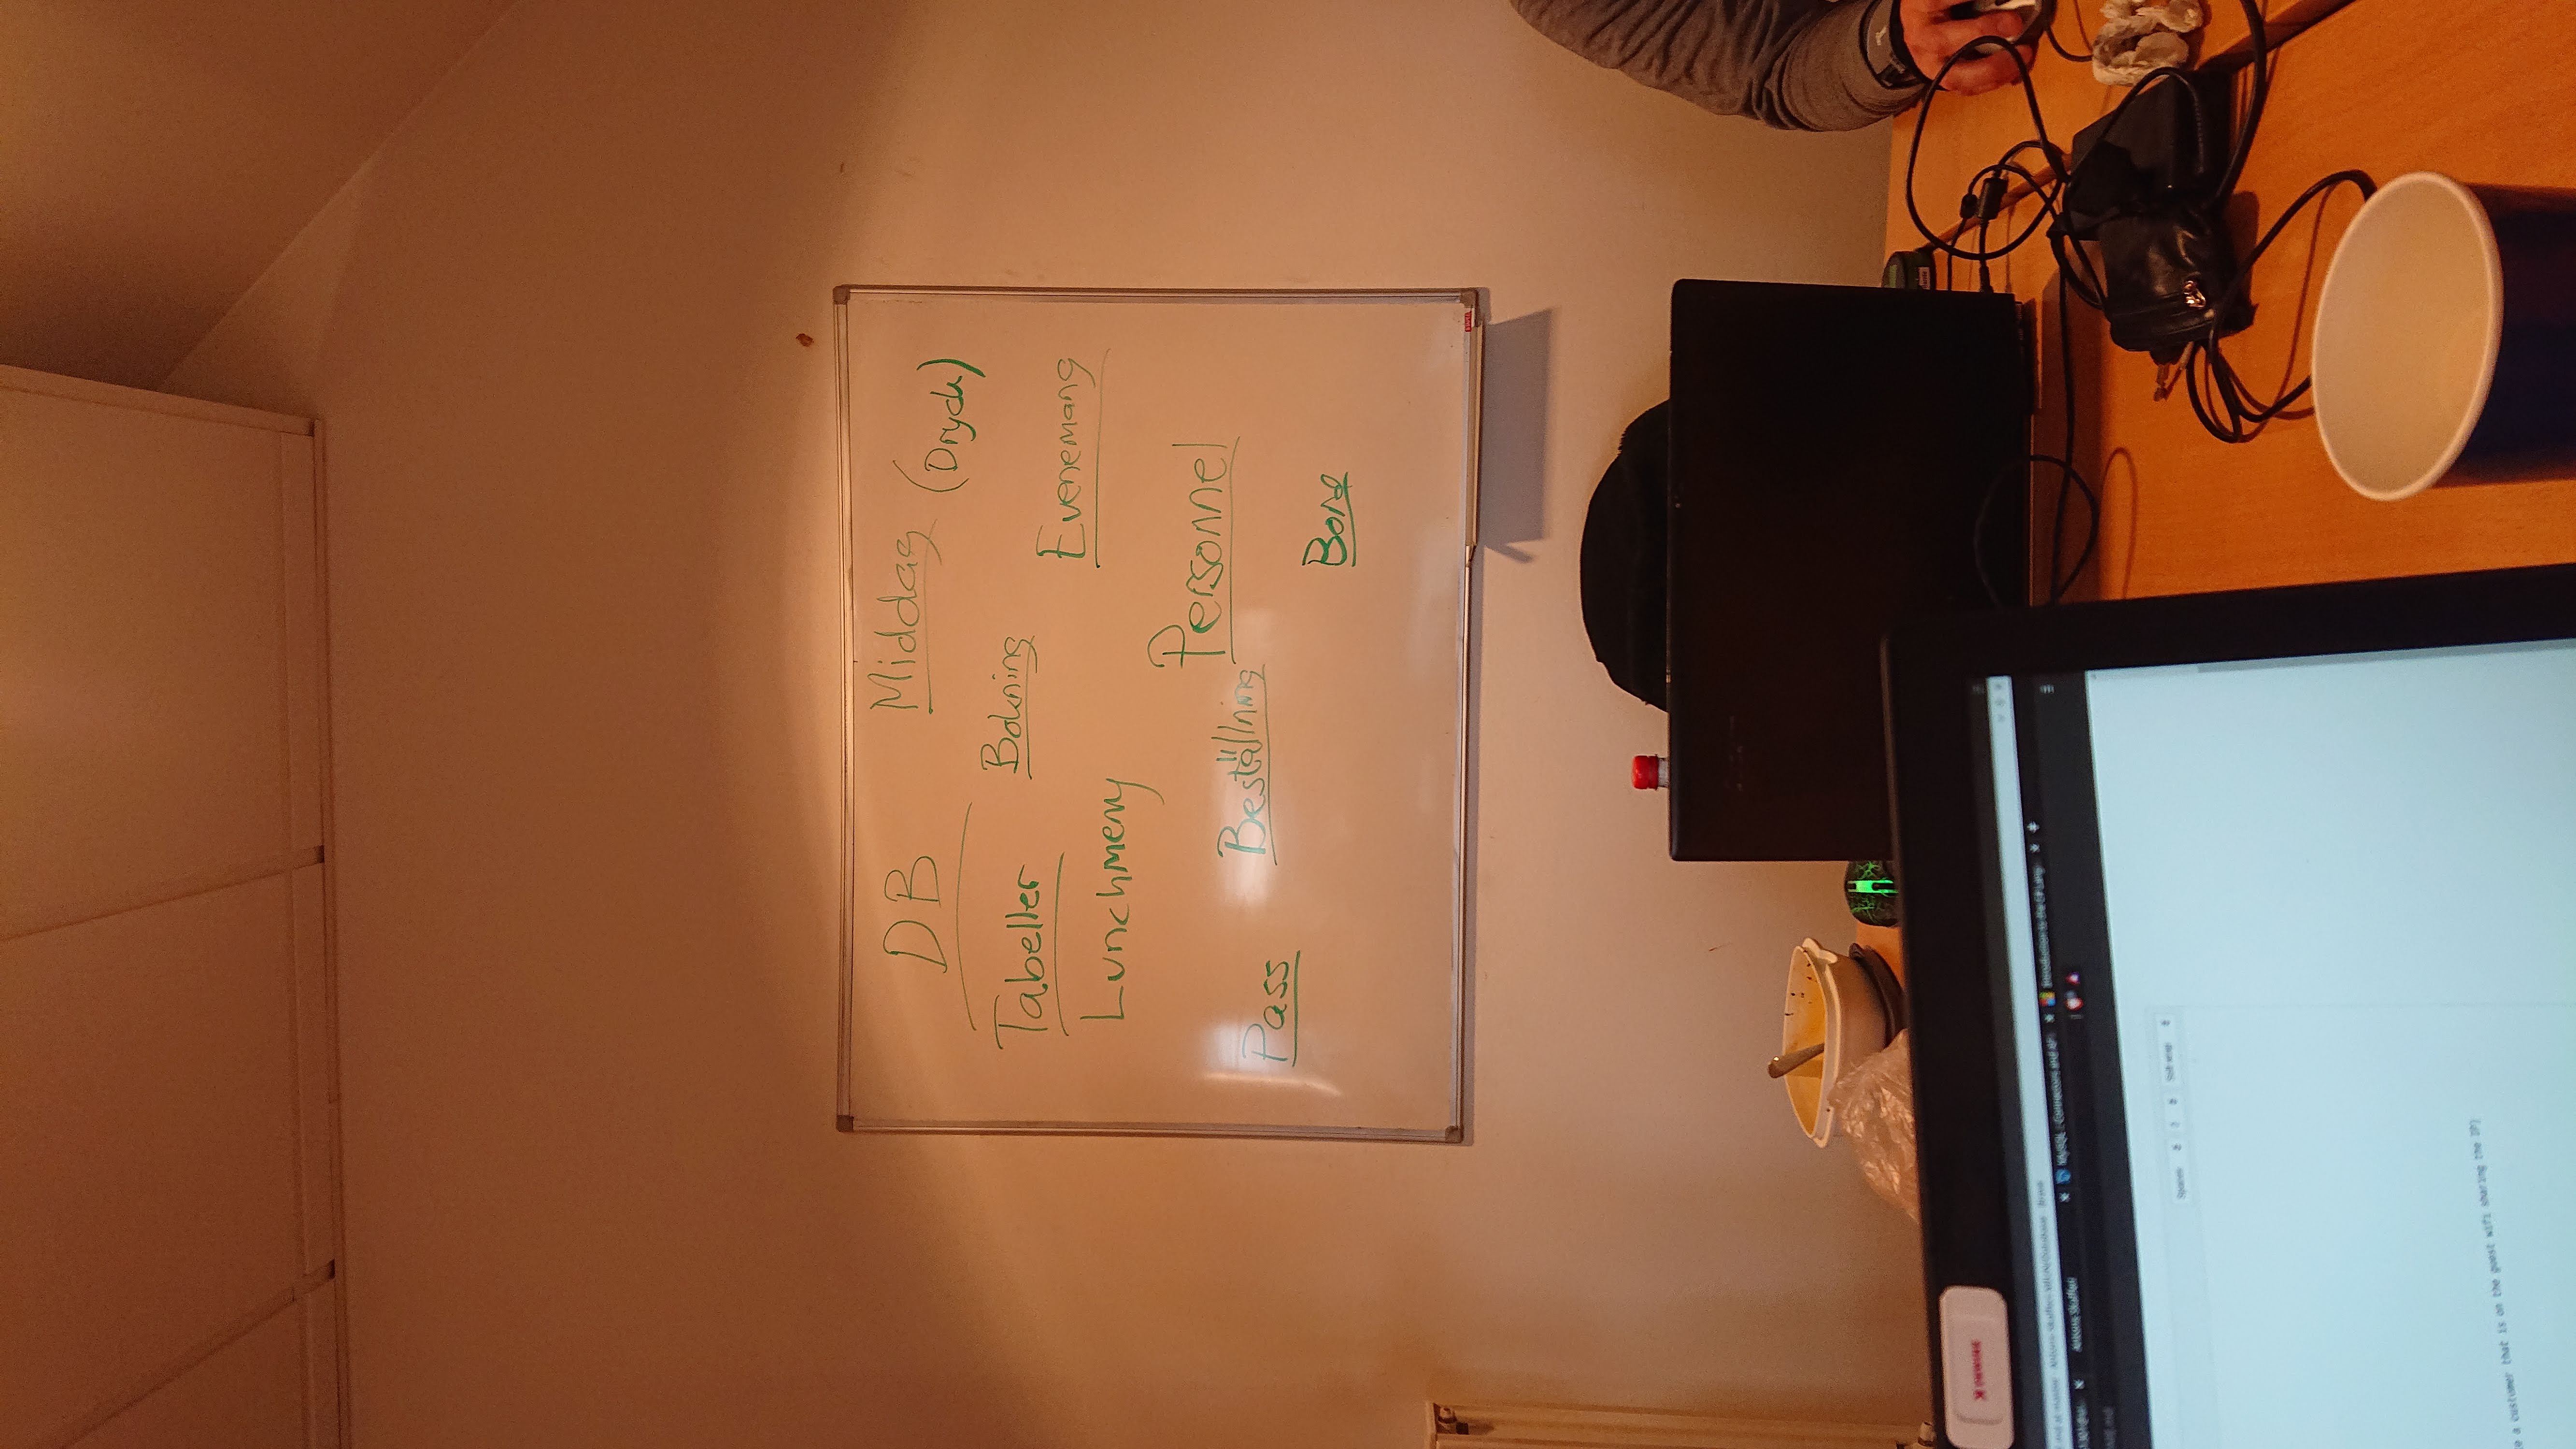 DB
Middag
(Dryck)
Tabeller
Bokning
Evenemang
Lunchmeny
Personnel
Beställning
Pass
Bord
Antons Skafferi
MySQL :: Connectors and AP
Introduction to the C# Lang
Spaces 2 Soft wrap
a customer that is on the guest wifi sharing the IP)